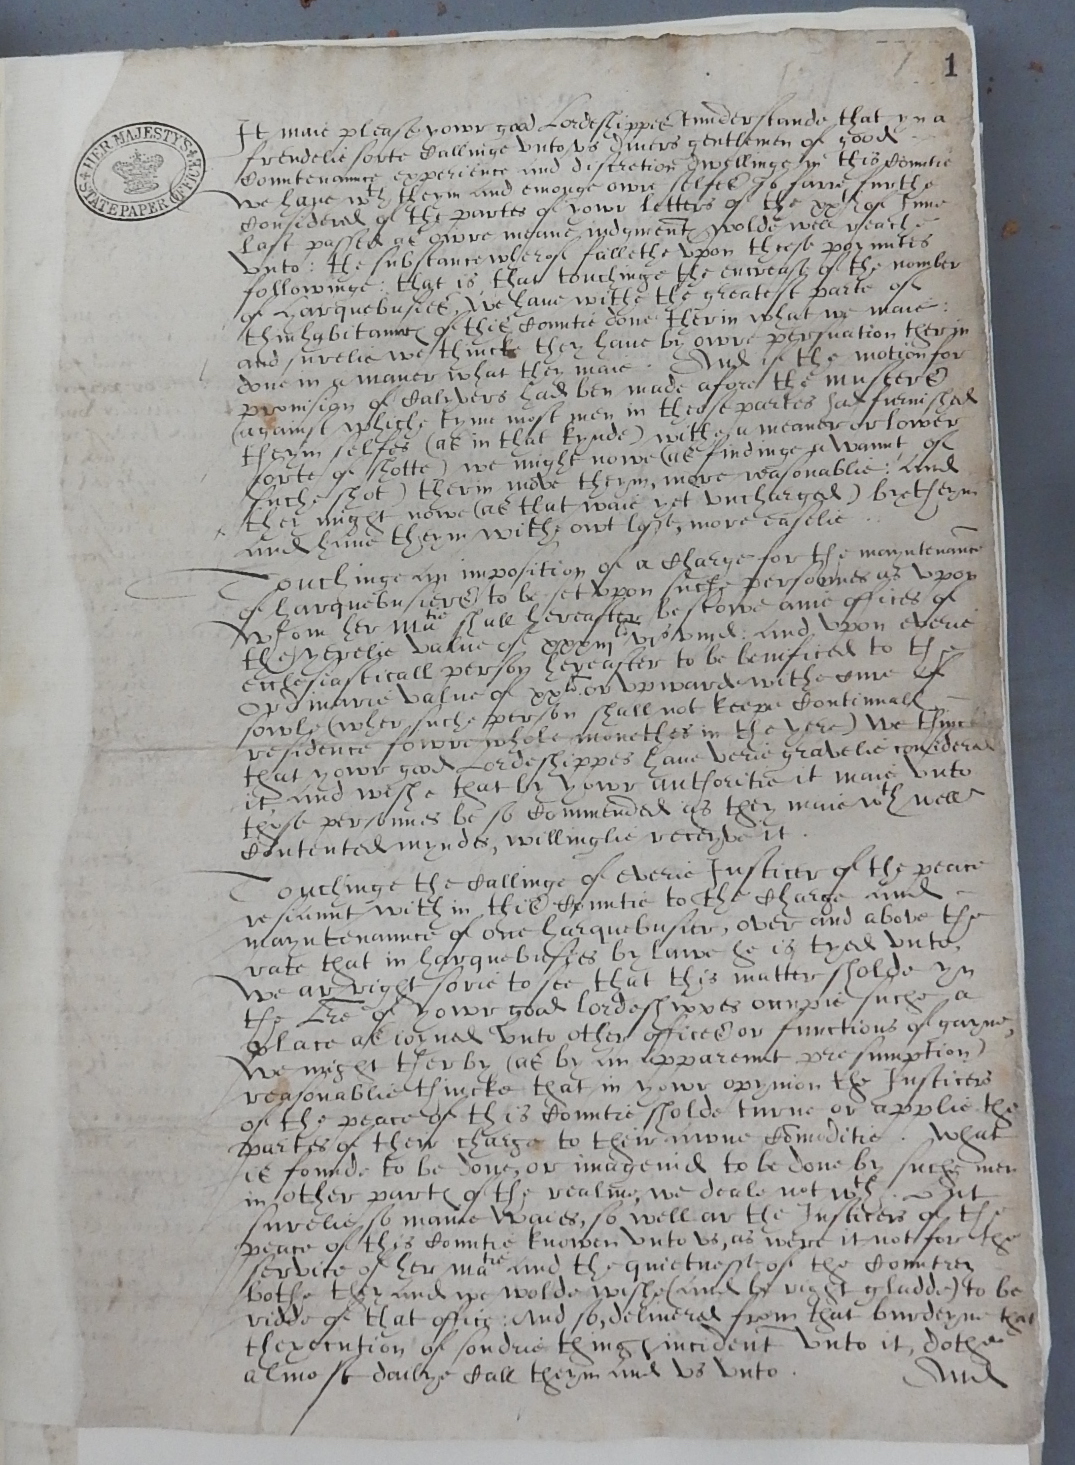 1
HER MAJESTY'S STATE PAPER OFFICE
It maie please yowr good Lordeshippes tunderstande that yn a
frendelie sorte callinge unto us divers gentlemen of good
Countenaunce experience and discretion dwellinge in this Countie
We have wth theym and emonge owre selfes so farre furthe
Considered of the partes of yowr letters of the xxth of June
last passed as owre meane iudgment wolde well reache
unto: the substance wherof fallethe upon theese poyntes
followinge: that is that touchinge the encrease of the nomber
of harquebusies, We have withe the greatest parte of
thinhabitantes of this Countie done therin what we maie:
and surelie we thincke they have by owre perswation therin
done in a maner what they maie. And if the motion for
provision of Calivers had ben made afore the musters
(against whiche tyme most men in those partes had furnished
theym selfes (as in that kynde) withe a meaner or lower
sorte of shotte) we might nowe (as findinge a waunt of
suche shot) therin move theym, more reasonablie: And
they might nowe (as that waie yet uncharged) bye theym
and have theym withe owt losse, more easelie.
Touchinge an imposition of a Charge for the mayntenance
of harquebusiers to be set upon suche personnes as upon
Whom her Matie shall hereafter bestowe anie offices of
the yerelie value of vjs viijd: And upon everie
ecclesiasticall person hereafter to be beneficed to the
Ordinarie value of xxli or upwarde withe Cure of
sowle (wher suche person shall not keepe Continuall
residence fowre whole monethes in the yere) We thincke
that yowr good Lordeshippes have verie gravelie considered
it and wishe that by yowr authoritie it maie unto
those personnes be so Commended as they maie wth well
Contented myndes, willinglie receyve it.
Touchinge the Callinge of everie Justicer of the peace
resiaunt with in this Countie to the Charge and
mayntenaunce of one harquebusier, over and above the
rate that in harquebusies by lawe he is tyed unto,
We ar right sorie to see that this matter sholde yn
the Lre of yowr good lordeshippes occupie suche a
place as ioyned unto other offices or functions of gayne,
We might therby (as by an apparent presumption)
reasonablie thincke that in yowr opynion the Justicers
of the peace of this Countie sholde turne or applie the
partes of their charge to their owne Comoditie. What
is founde to be done, or imagenid to be done by suche men
in other partes of the realme, we deale not wth. But
surelie, so manie waies, so well ar the Justicers of the
peace of this Countie knowen unto us, as were it not for the
service of her Matie and the quietnesse of the Countrey
bothe they and we wolde wishe (and be right gladde) to be
ridde of that office: And so delivered from that burdeyne that
thexecution of sondrie thinges incident unto it, dothe
almost dailye Call theym and us unto.
And